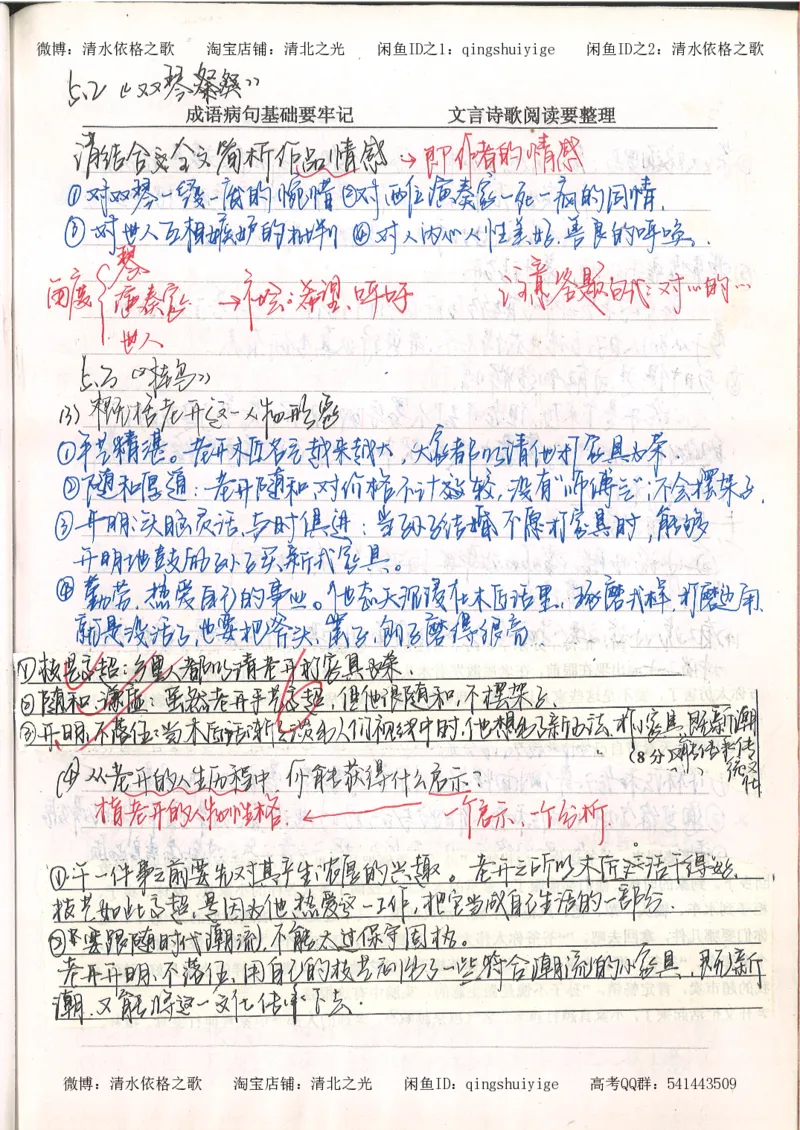 微博：清水依格之歌 淘宝店铺：清北之光 闲鱼ID之1：qingshuiyige 闲鱼ID之2：清水依格之歌
5.2《双琴祭》
成语病句基础要牢记 文言诗歌阅读要整理
请结合全文简析作品情感 → 即作者的情感
①对双琴一毁一底的惋惜 ②对两位演奏家一死一病的同情，
③对世人互相嫉妒的批判 ④对人内心人性美好、善良的呼唤。
角度 琴
演奏家 → 社会：希望、呼吁 注意答题句式：对…的…
世人
(3) 概括老开这一人物形象
①手艺精湛。老开木匠名气越来越大，大家都以请他打家具为荣
②随和厚道：老开随和，对价格不计较，没有"师傅"，不会摆架子，
③开明：头脑灵活，与时俱进：当孙子结婚不愿打家具时，能够
开明地鼓励孙子买新式家具。
④勤劳，热爱自己的事业。他态天沉浸在木匠活里。琢磨式样，打磨边角，
就是没活了，也要把斧头、凿子、刨子磨得很亮
①技艺高超：乡里人都以请老开打家具为荣.
②随和、谦虚：虽然老开手艺高超，但他很随和，不摆架子.
③开明、不落伍：当木匠活渐淡出人们视线中时，他想出了新办法，打小家具，既新潮
(8分)
(4) 从老开的人生历程中，你能获得什么启示？
指老开的人物性格. ← 一个启示，一个分析.
①干一件事之前要先对其产生浓厚的兴趣。老开之所以木匠活干得好，
技艺如此高超，是因为他热爱这一工作，把它当成自己生活的一部分.
②要跟随时代潮流，不能太过保守固格。
老开开明、不落伍，用自己的技艺制作了一些符合潮流的小家具，既新
潮，又能将这一文化传承下去.
微博：清水依格之歌 淘宝店铺：清北之光 闲鱼ID：qingshuiyige 高考QQ群：541443509